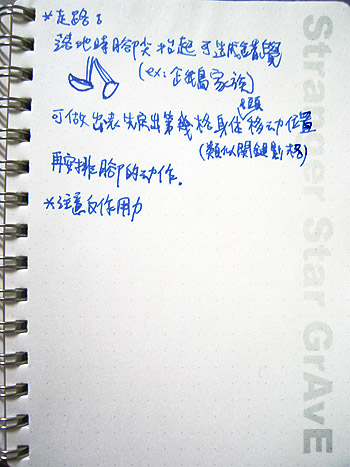 *走路:
落地時腳尖抬起可造成錯覺
(ex:企鵝家族)
可做出表先定出第幾格身体移动位置
頭
(類似關鍵影格)
再安排腳的动作.
*注意反作用力
Stranger Star GrAvE